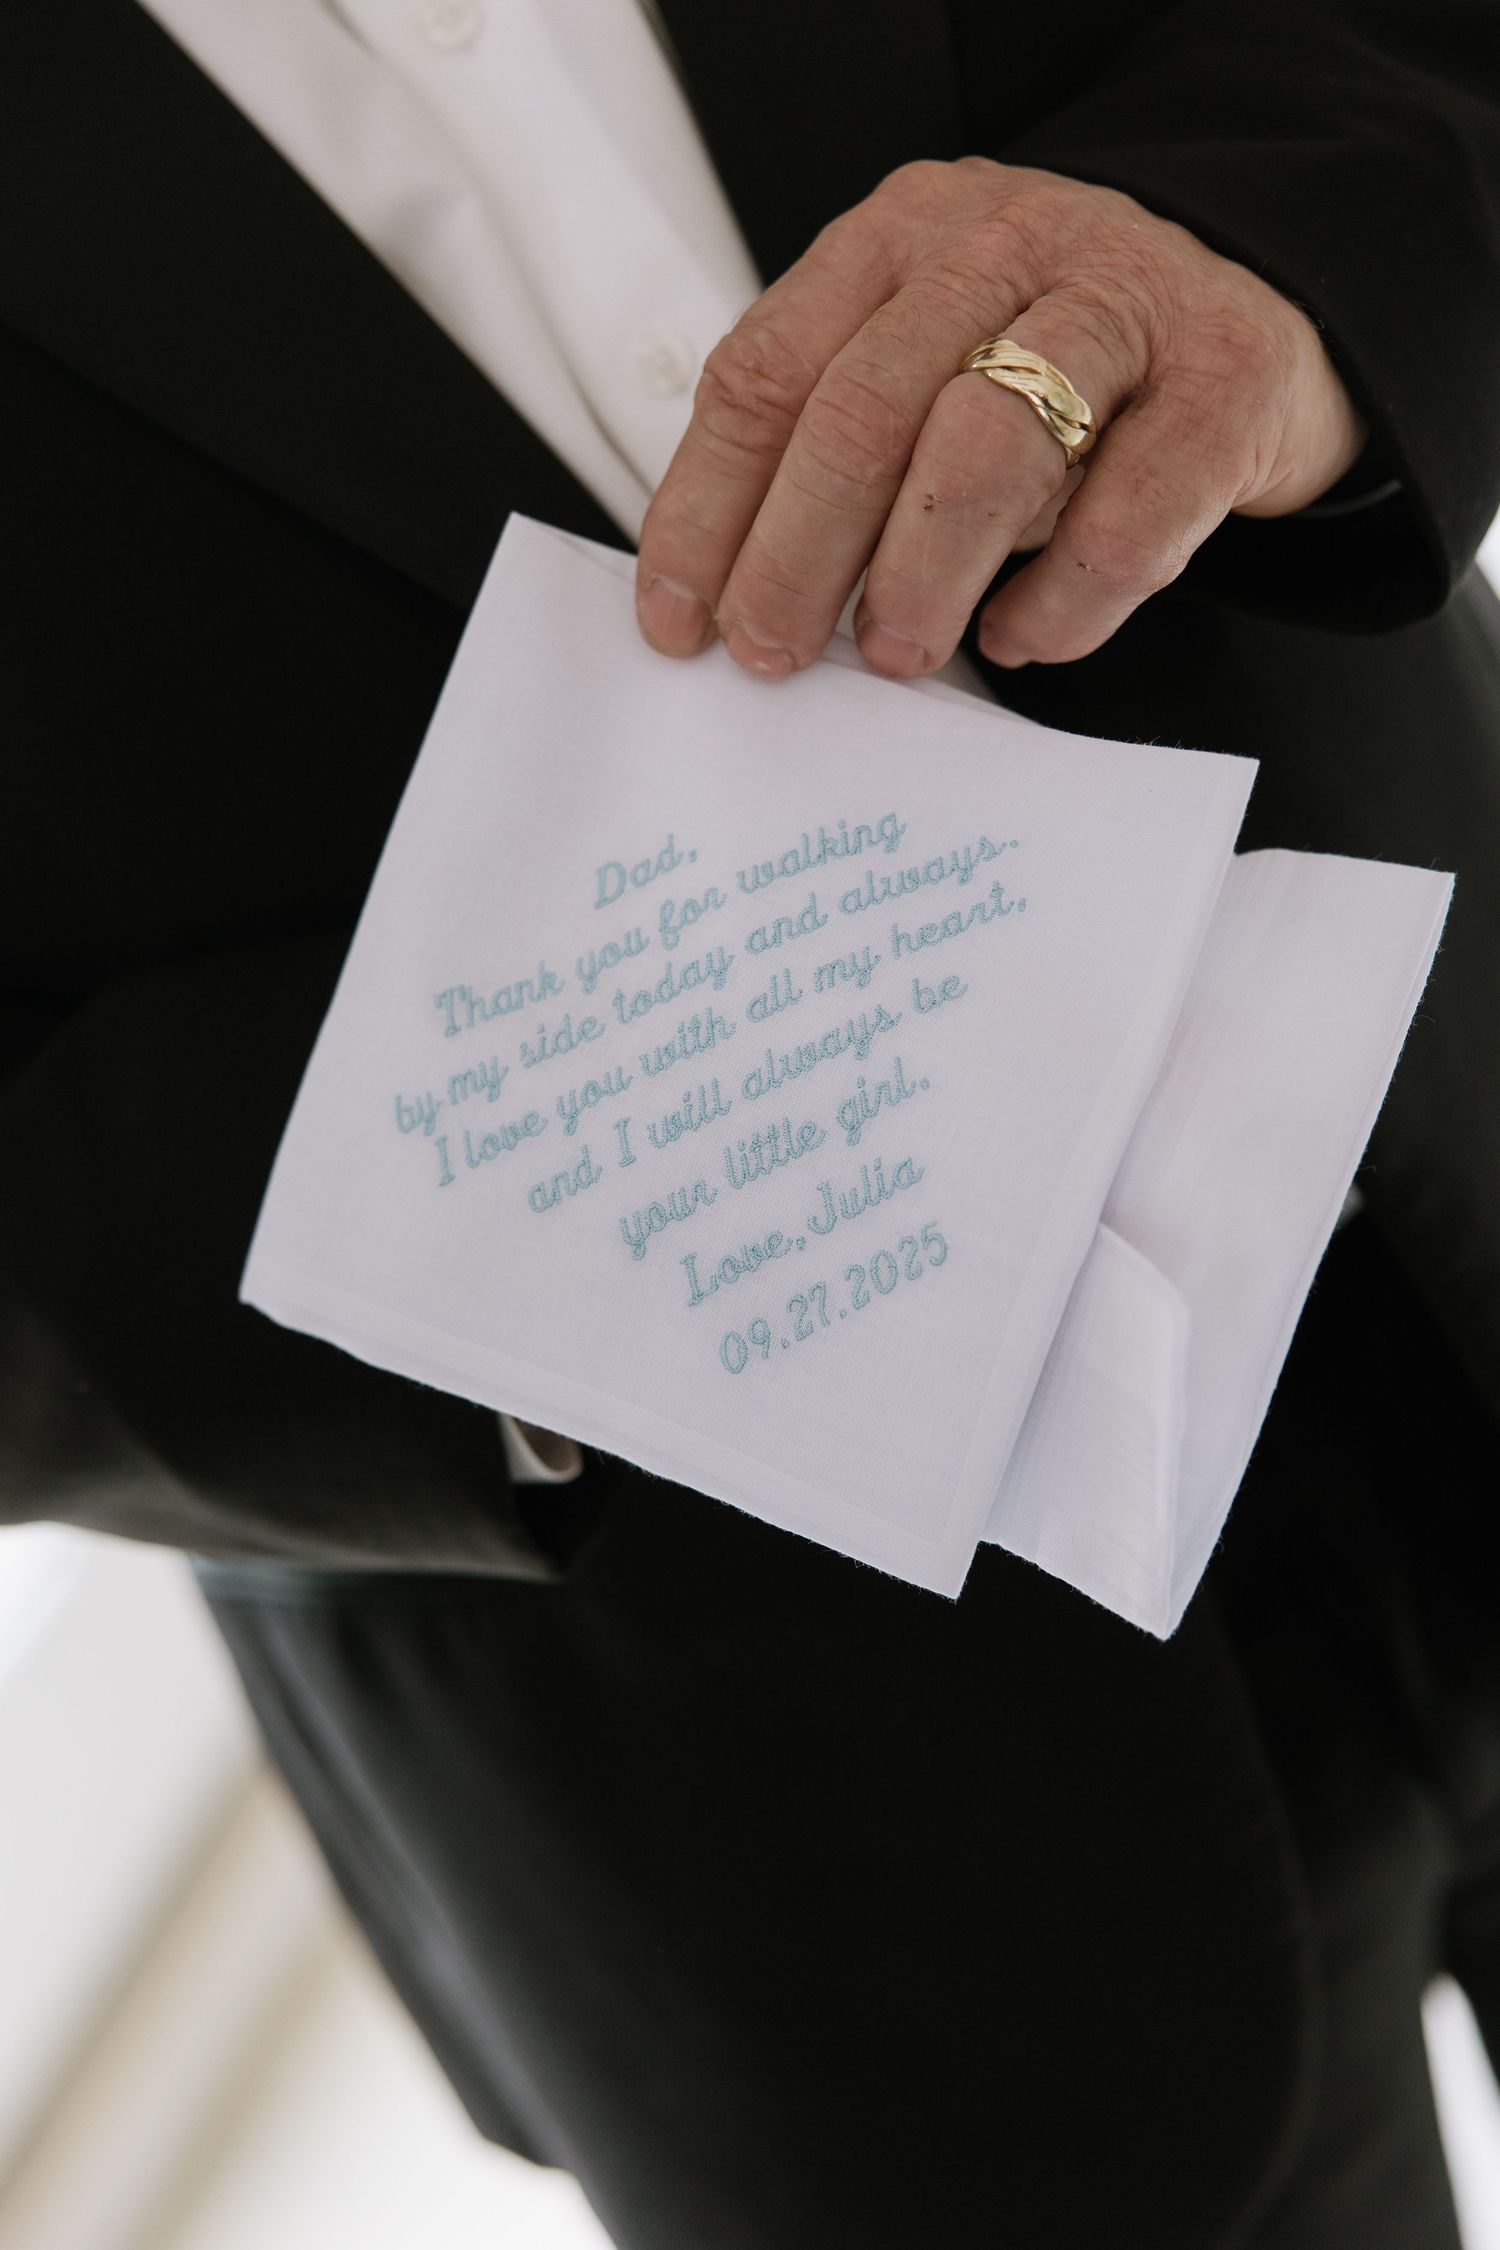 Dad,
Thank you for walking
by my side today and always.
I love you with all my heart,
and I will always be
your little girl.
Love, Julia
09.27.2025